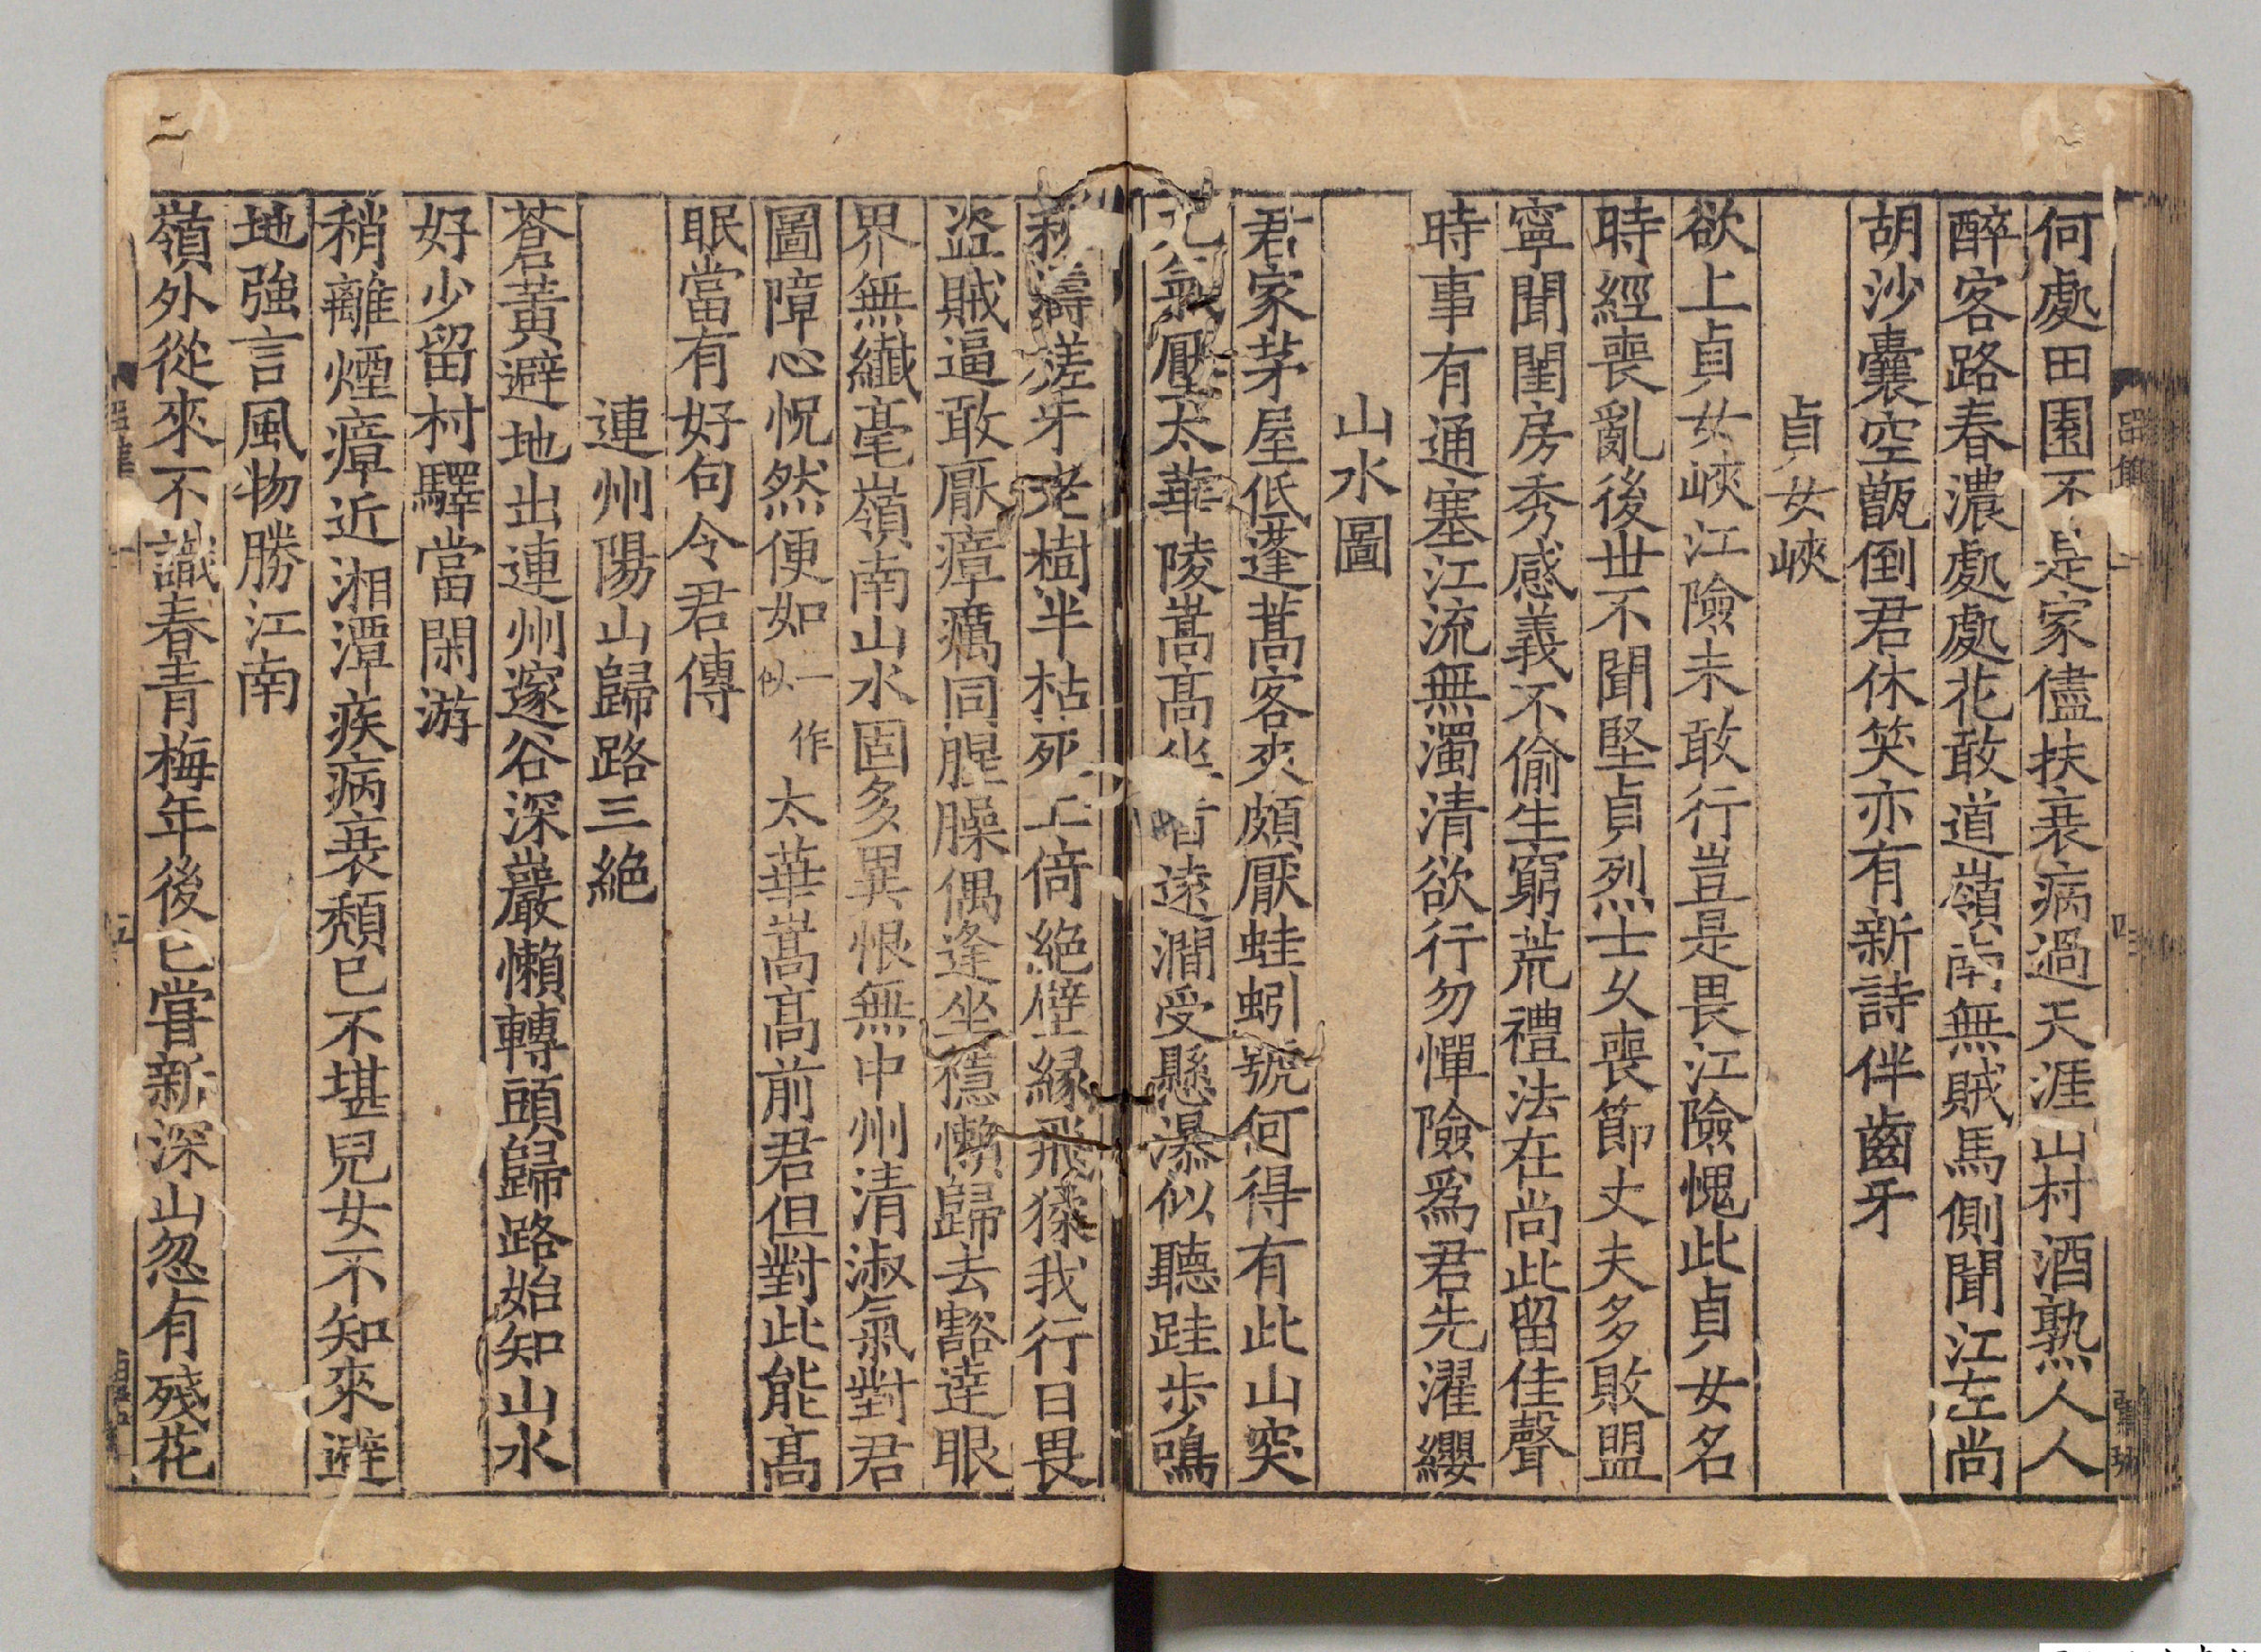 何處田園不是家儘扶衰病過天涯山村酒熟人人
醉客路春濃處處花敢道嶺南無賊馬側聞江左尚
胡沙囊空甑倒君休笑亦有新詩伴齒牙
貞女峽
欲上貞女峽江險未敢行豈是畏江險愧此貞女名
時經喪亂後世不聞堅貞烈士久喪節丈夫多敗盟
寧聞閨房秀感義不偷生窮荒禮法在尚此留佳聲
時事有通塞江流無濁清欲行勿憚險爲君先濯纓
山水圖
君家茅屋低蓬蒿客來頗厭蛙蚓號何得有此山突
兀氣壓太華陵嵩高遠澗受懸瀑似聽跬步鳴
濤槎牙老樹半枯死上倚絶壁縁飛猱我行日畏
盜賊逼敢厭瘴癘同腥臊偶逢坐穩懶歸去豁達眼
界無纖毫嶺南山水固多異恨無中州清淑氣對君
圖障心怳然便如一作似太華嵩高前君但對此能高
眠當有好句令君傳
連州陽山歸路三絶
蒼黃避地出連州邃谷深巖懶轉頭歸路始知山水
好少留村驛當閑游
稍離煙瘴近湘潭疾病衰頹已不堪兒女不知來避
地強言風物勝江南
嶺外從來不識春青梅年後已嘗新深山忽有殘花
二